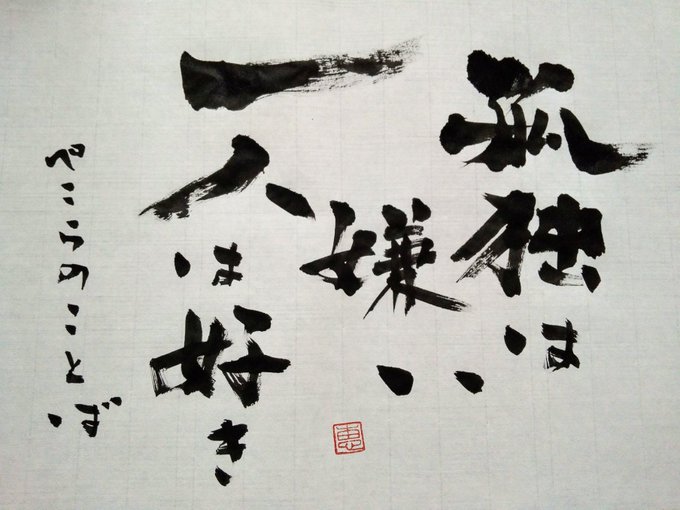 孤独は
嫌い
一人は好き
ぺこらのことば